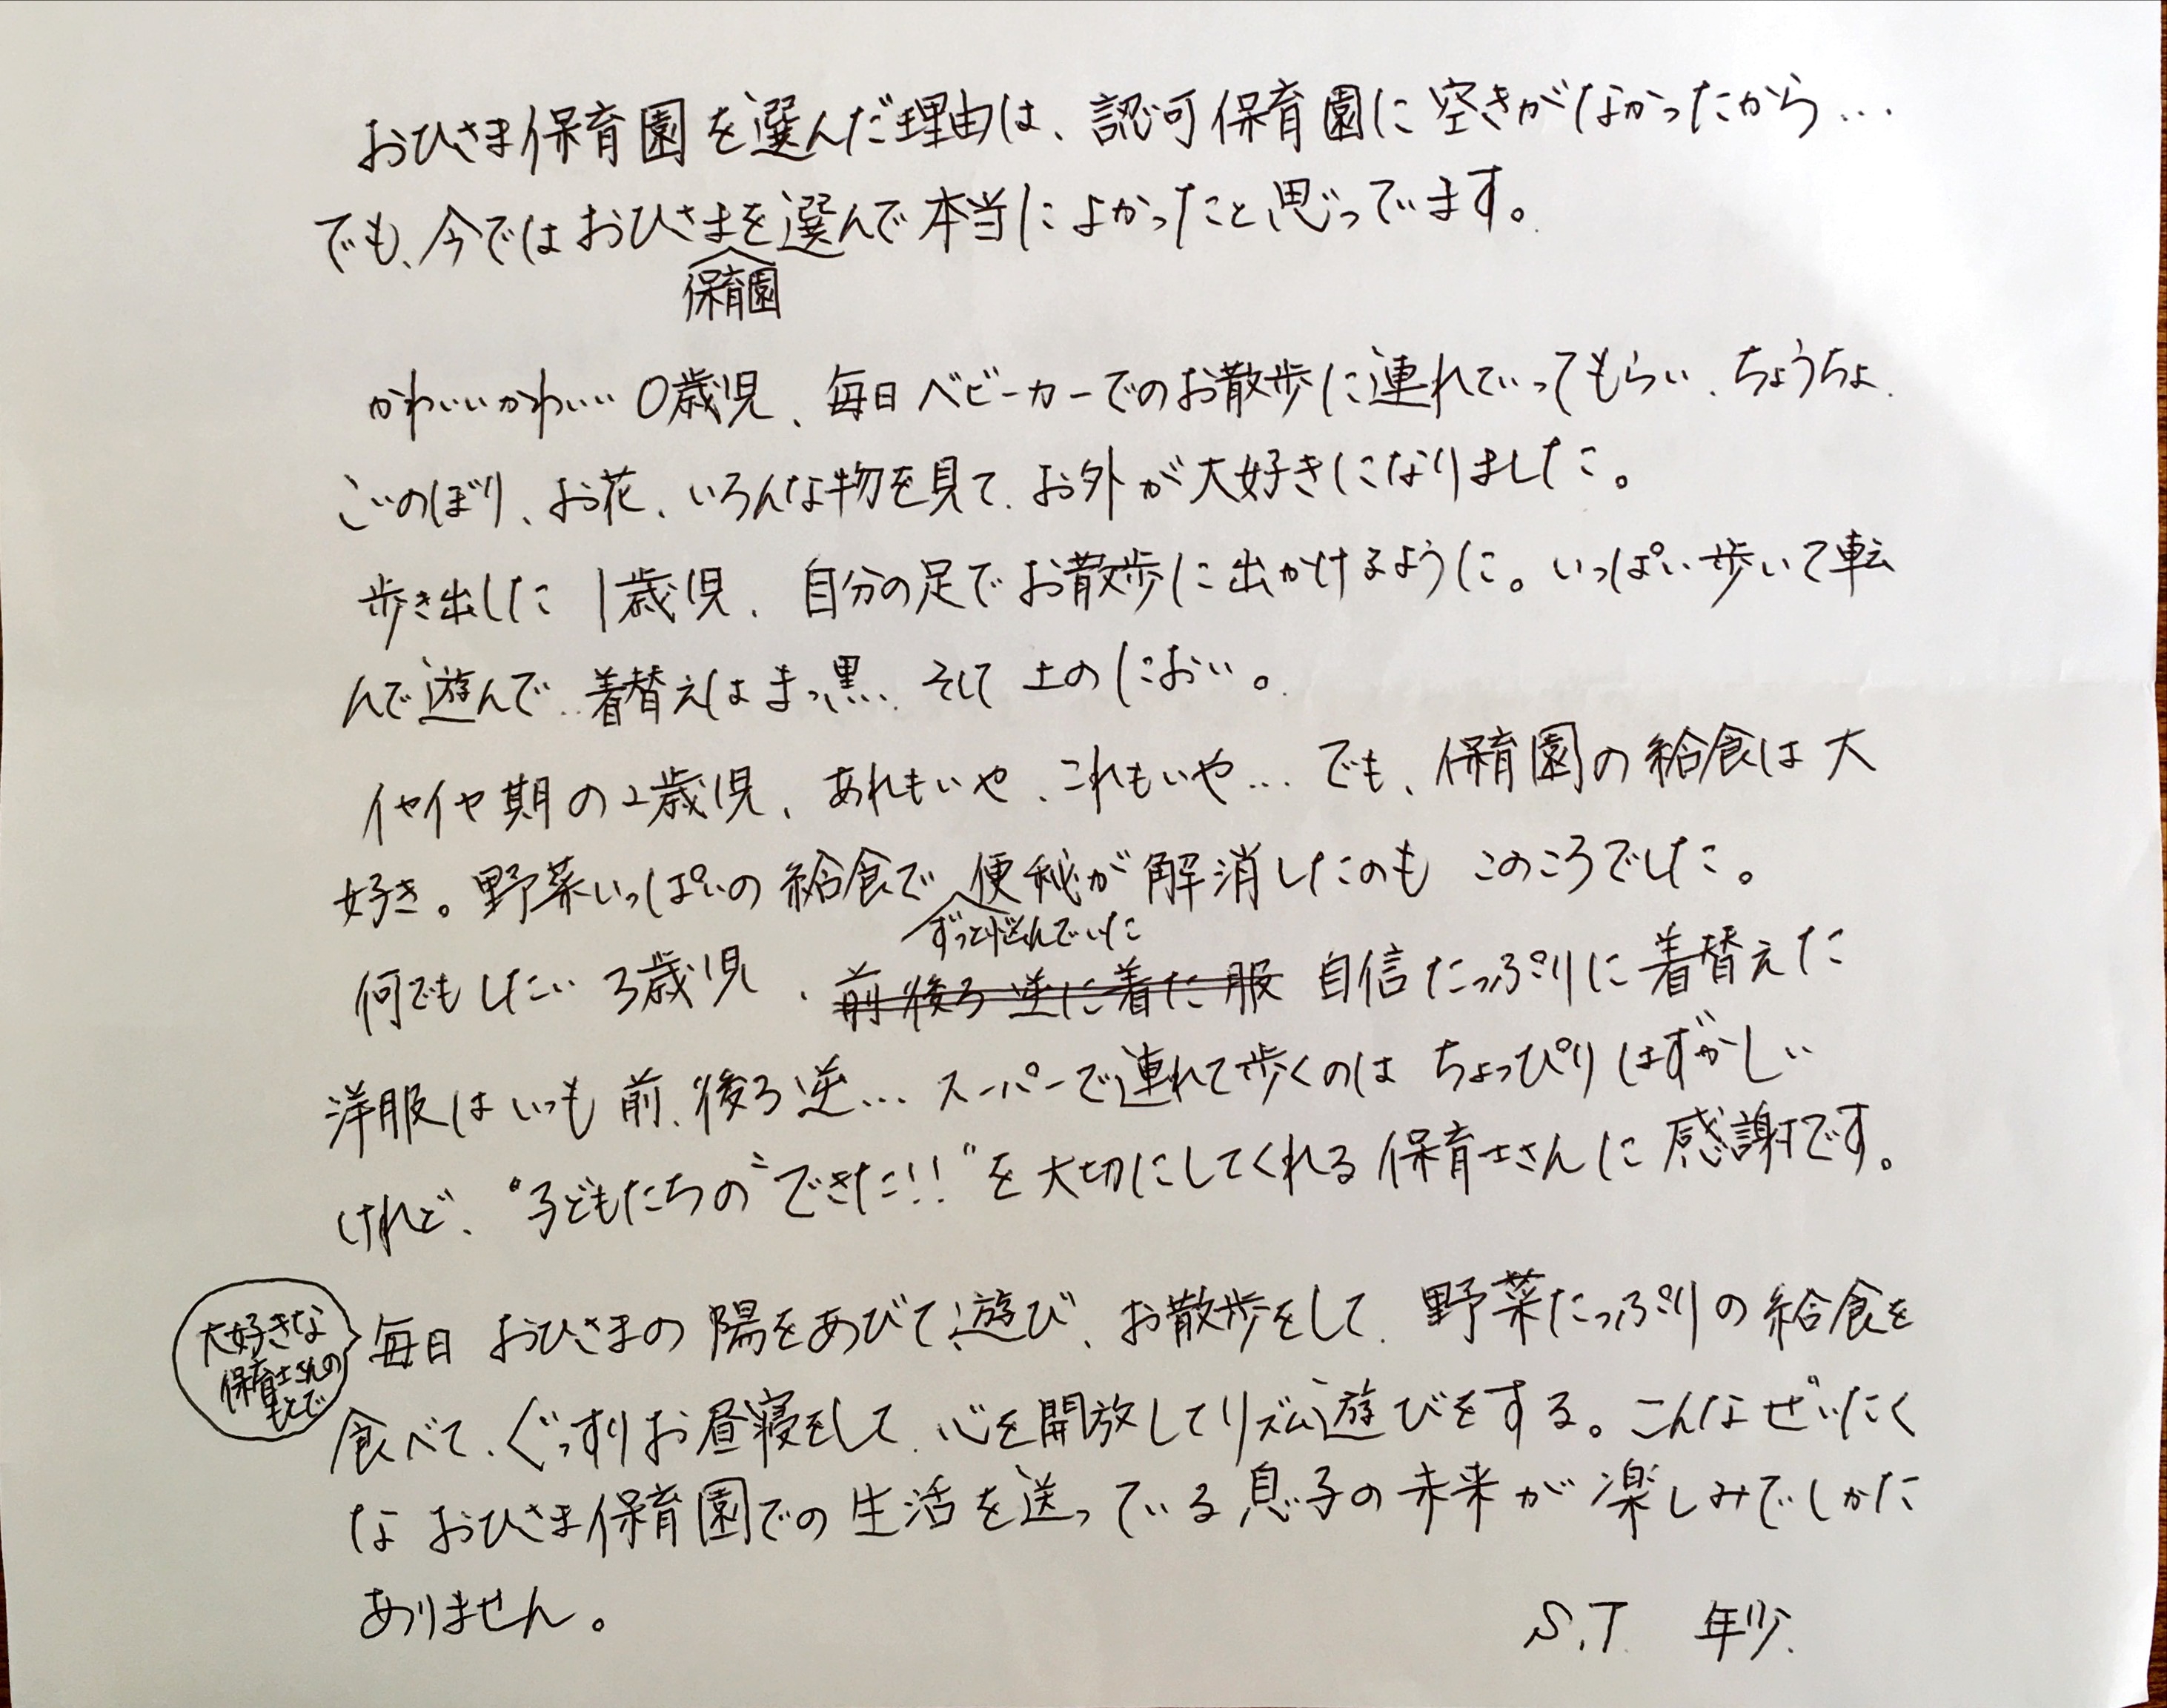 おひさま保育園を選んだ理由は、認可保育園に空きがなかったから…
でも、今ではおひさまを選んで本当によかったと思っています。
保育園
かわいいかわいい0歳児、毎日ベビーカーでのお散歩に連れていってもらい、ちょうちょ、
こいのぼり、お花、いろんな物を見て、お外が大好きになりました。
歩き出した1歳児、自分の足でお散歩に出かけるように。いっぱい歩いて転
んで遊んで、着替えはまっ黒、そして土のにおい。
イヤイヤ期の2歳児、あれもいや、これもいや…でも、保育園の給食は大
好き。野菜いっぱいの給食で、便秘が解消したのもこのころでした。
ずっと悩んでいた
何でもしたい3歳児、前後ろ逆に着た服 自信たっぷりに着替えた
洋服はいつも前、後ろ逆…スーパーで連れて歩くのはちょっぴりはずかしい
けれど、"子どもたちの"できた!!"を大切にしてくれる保育士さんに感謝です。
大好きな
保育士さんの
もとで
毎日おひさまの陽をあびて遊び、お散歩をして、野菜たっぷりの給食を
食べて、ぐっすりお昼寝をして、心を開放してリズム遊びをする。こんなぜいたく
なおひさま保育園での生活を送っている息子の未来が楽しみでしかた
ありません。
S.T. 年少